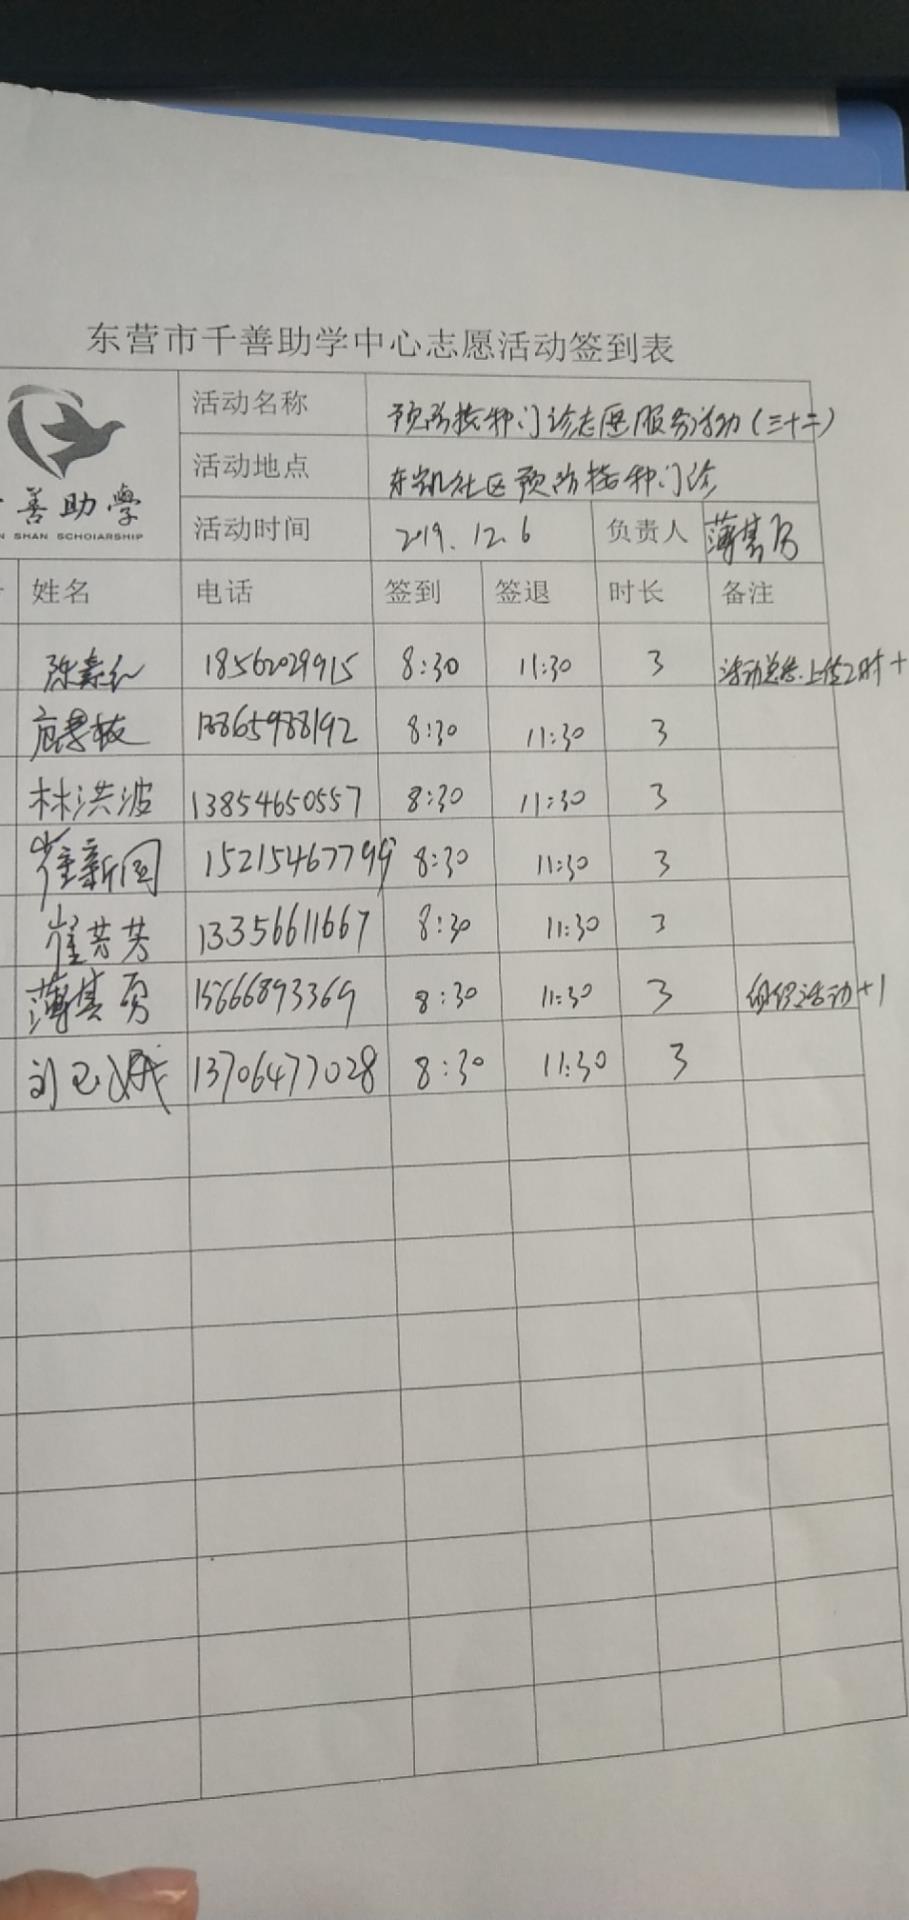 东营市千善助学中心志愿活动签到表
活动名称 预防接种门诊志愿服务活动(三十二)
善助學
活动地点 东凯社区预防接种门诊
N SHAN SCHOlARSHIP
活动时间 2019.12.6 负责人 薄其勇
姓名 电话 签到 签退 时长 备注
18562029915 8:30 11:30 3 活动总结.上传2时+
13865988192 8:30 11:30 3
林洪波 13854650557 8:30 11:30 3
崔新国 15215467799 8:30 11:30 3
崔芳芳 13356611667 8:30 11:30 3
薄其勇 15666893369 8:30 11:30 3 组织活动+1
刘 13706477028 8:30 11:30 3